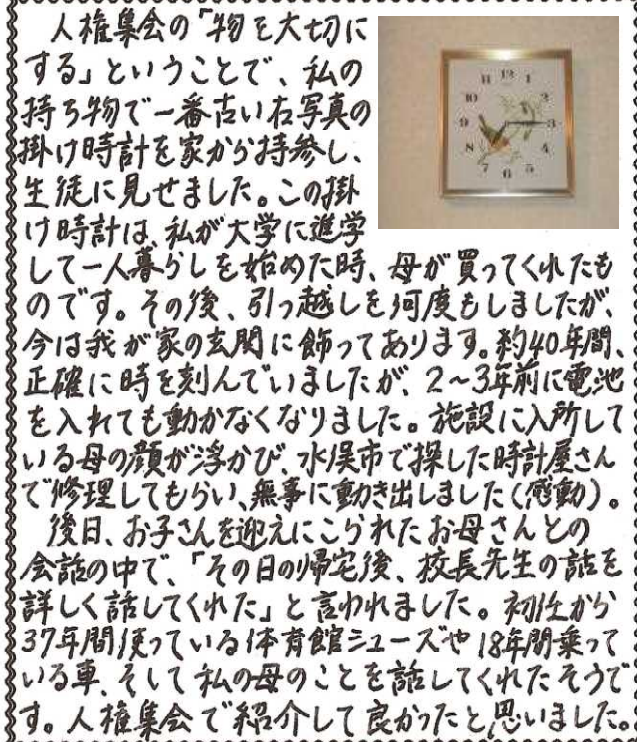 人権集会の「物を大切に
する」ということで、私の
持ち物で一番古い右写真の
掛け時計を家から持参し、
生徒に見せました。この掛
け時計は、私が大学に進学
して一人暮らしを始めた時、母が買ってくれたも
のです。その後、引っ越しを何度もしましたが、
今は我が家の玄関に飾ってあります。約40年間、
正確に時を刻んでいましたが、2~3年前に電池
を入れても動かなくなりました。施設に入所して
いる母の顔が浮かび、水俣市で探した時計屋さん
で修理してもらい、無事に動き出しました(感動)。
後日、お子さんを迎えにこられたお母さんとの
会話の中で、「その日の帰宅後、校長先生の話を
詳しく話してくれた」と言われました。初任から
37年間使っている体育館シューズや18年間乗って
いる車、そして私の母のことを話してくれたそうで
す。人権集会で紹介して良かったと思いました。
11 12 1
10 2
9 3
8 4
7 6 5